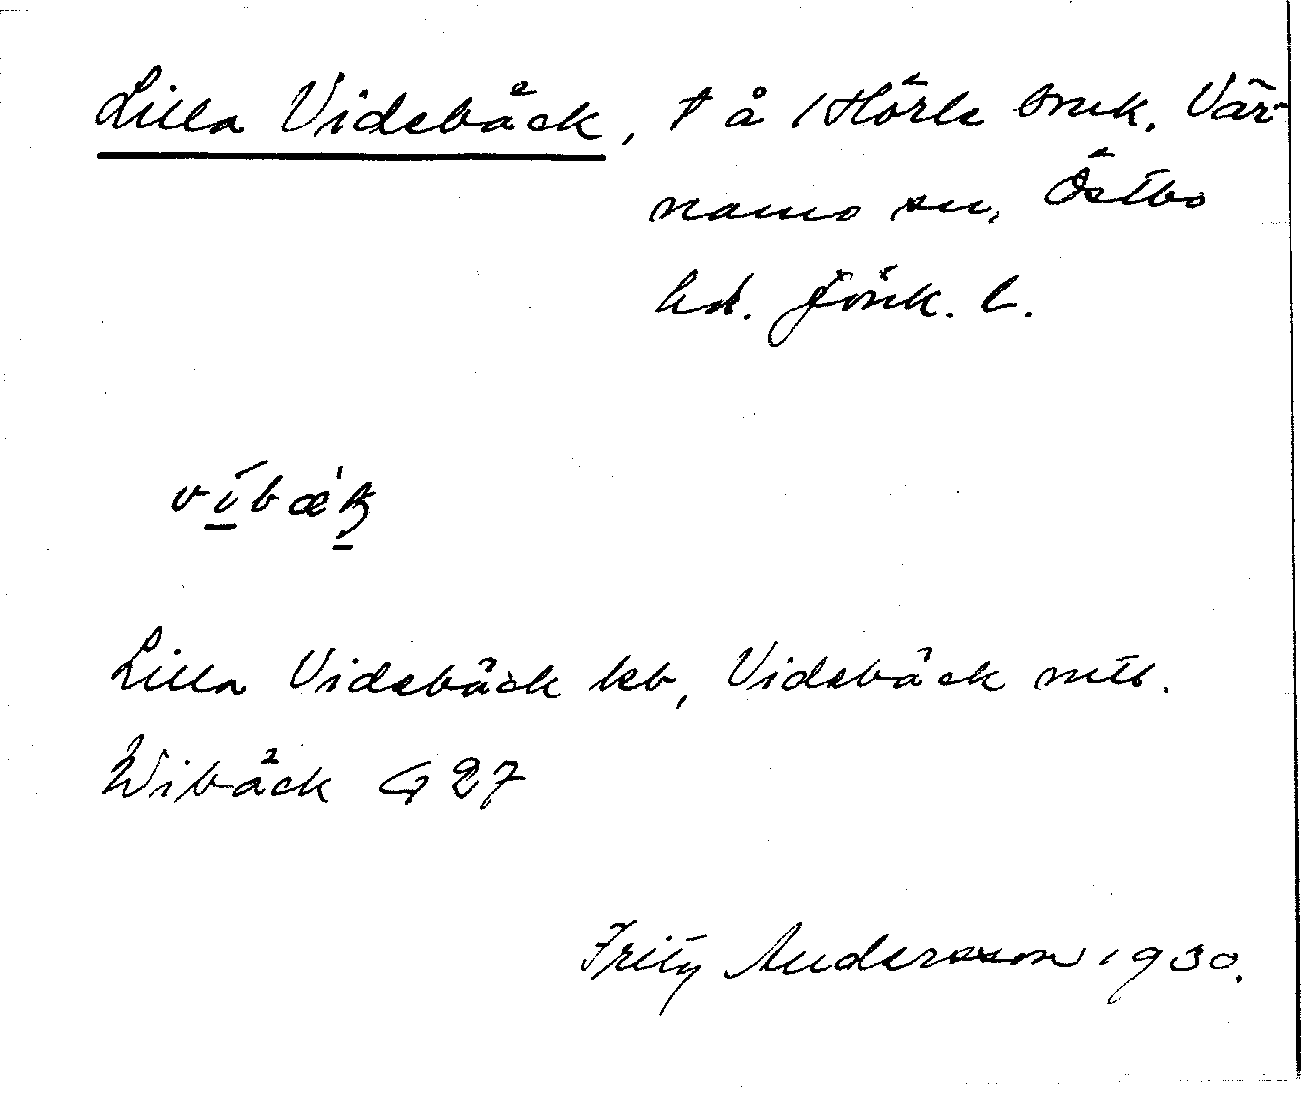 Lilla Videbäck, t å 1 Hörle bruk, Vär-
namo sn, Östbo
hd. Jönk. l.
víbæ'k
Lilla Videbäck kb, Videbäck mtl.
Wibäck G 27
Fritz Andersson 1930.